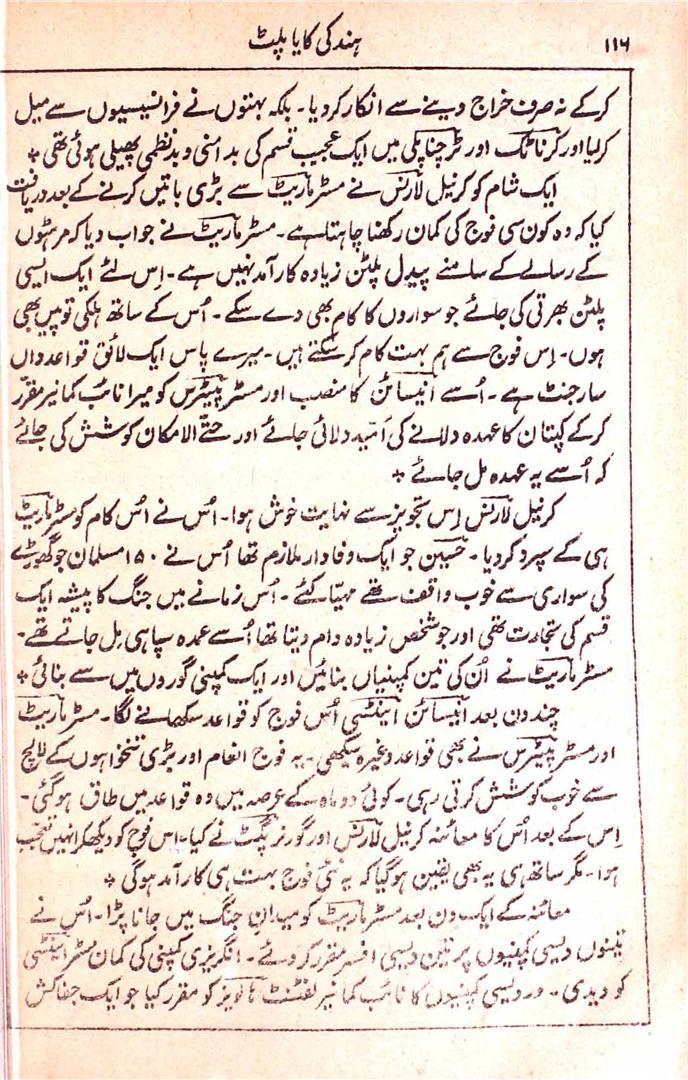 ۱۱۶
ہند کی کایا پلٹ
کرکے نہ صرف خراج دینے سے انکار کر دیا۔ بلکہ بہتوں نے فرانسیسیوں سے میل
کر لیا اور کرناٹک اور ٹرچناپلی میں ایک عجیب قسم کی بدامنی و بدنظمی پھیلی ہوئی تھی ٭
ایک شام کو کرنیل لارنس نے مسٹر مارینٹ سے بڑی باتیں کرنے کے بعد دریافت
کیا کہ وہ کون سی فوج کی کمان رکھنا چاہتا ہے۔ مسٹر مارینٹ نے جواب دیا کہ مرہٹوں
کے رسالے کے سامنے پیدل پلٹن زیادہ کارآمد نہیں ہے۔ اِس لئے ایک ایسی
پلٹن بھرتی کی جائے جو سواروں کا کام بھی دے سکے۔ اُس کے ساتھ ہلکی توپیں بھی
ہوں۔ اِس فوج سے ہم بہت کام کر سکتے ہیں۔ میرے پاس ایک لائق قواعد داں
سارجنٹ ہے۔ اُسے انیسائن کا منصب اور مسٹر پیٹرس کو میرا نائب کمانیر مقرّر
کرکے کپتان کا عہدہ دلانے کی اُمّید دلائی جائے اور حتّے الامکان کوشش کی جائے
کہ اُسے یہ عہدہ مل جائے ٭
کرنیل لارنس اِس تجویز سے نہایت خوش ہوا۔ اُس نے اُس کام کو مسٹر مارینٹ
ہی کے سپرد کر دیا۔ حسین جو ایک وفادار ملازم تھا اُس نے ۱۵۰ مسلمان جو گھوڑے
کی سواری سے خوب واقف تھے مہیّا کئے۔ اُس زمانے میں جنگ کا پیشہ ایک
قسم کی تجارت تھی اور جو شخص زیادہ دام دیتا تھا اُسے عمدہ سپاہی مِل جاتے تھے۔
مسٹر مارینٹ نے اُن کی تین کمپنیاں بنائیں اور ایک کمپنی گوروں میں سے بنائی ٭
چند دن بعد انیسائن اینٹسی اُس فوج کو قواعد سکھانے لگا۔ مسٹر مارینٹ
اور مسٹر پیٹرس نے بھی قواعد وغیرہ سیکھی۔ یہ فوج انعام اور بڑی تنخواہوں کے لالچ
سے خوب کوشش کرتی رہی۔ کوئی دو ماہ کے عرصہ میں وہ قواعد میں طاق ہو گئی۔
اِس کے بعد اُس کا معائنہ کرنیل لارنس اور گورنر پگٹ نے کیا۔ اس فوج کو دیکھکر انہیں تعجّب
ہوا۔ مگر ساتھ ہی یہ بھی یقین ہو گیا کہ یہ نئی فوج بہت ہی کارآمد ہوگی ٭
معائنہ کے ایک دن بعد مسٹر مارینٹ کو میدانِ جنگ میں جانا پڑا۔ اُس نے
تینوں دیسی کمپنیوں پر تین دیسی افسر مقرر کر دئے۔ انگریزی کمپنی کی کمان مسٹر اینٹسی
کو دیدی۔ اور دیسی کمپنیوں کا نائب کمانیر لفٹننٹ ہالویز کو مقرر کیا جو ایک جفاکش